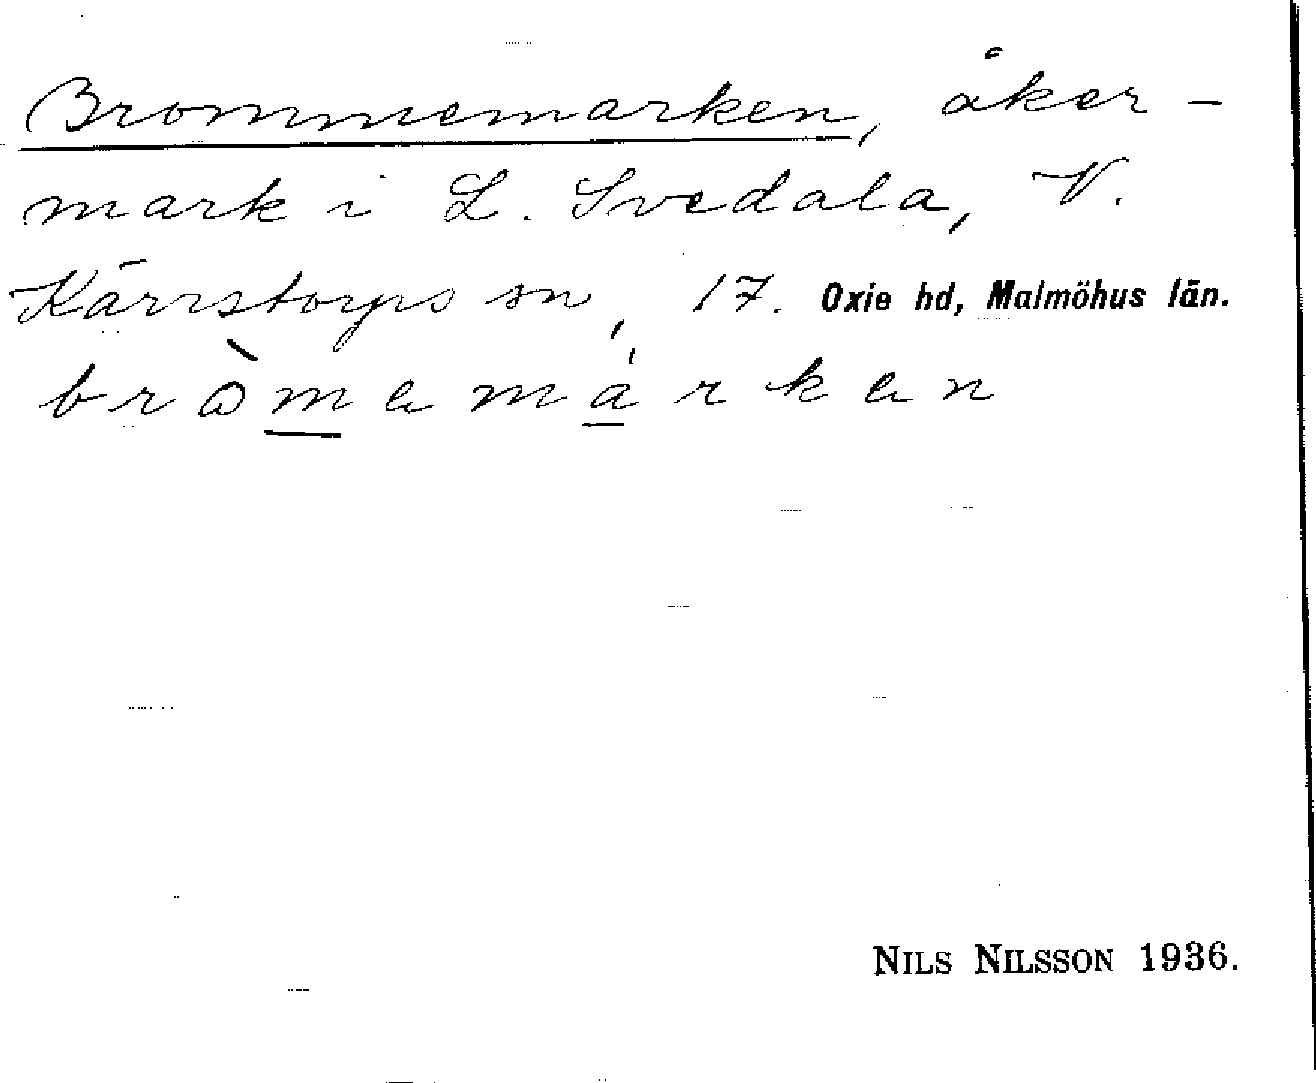 Brommemarken, åker-
mark i L. Svedala, V.
Kärrstorps sn, 17. Oxie hd, Malmöhus län.
bròmemárken
NILS NILSSON 1936.